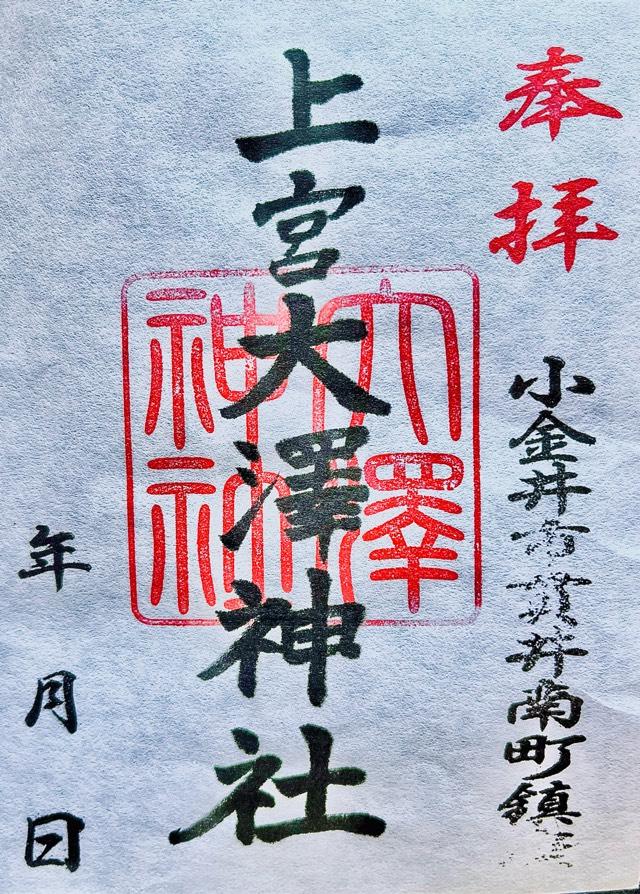 奉拝
小金井市貫井南町鎮
上宮大澤神社
大澤
神社
年 月 日